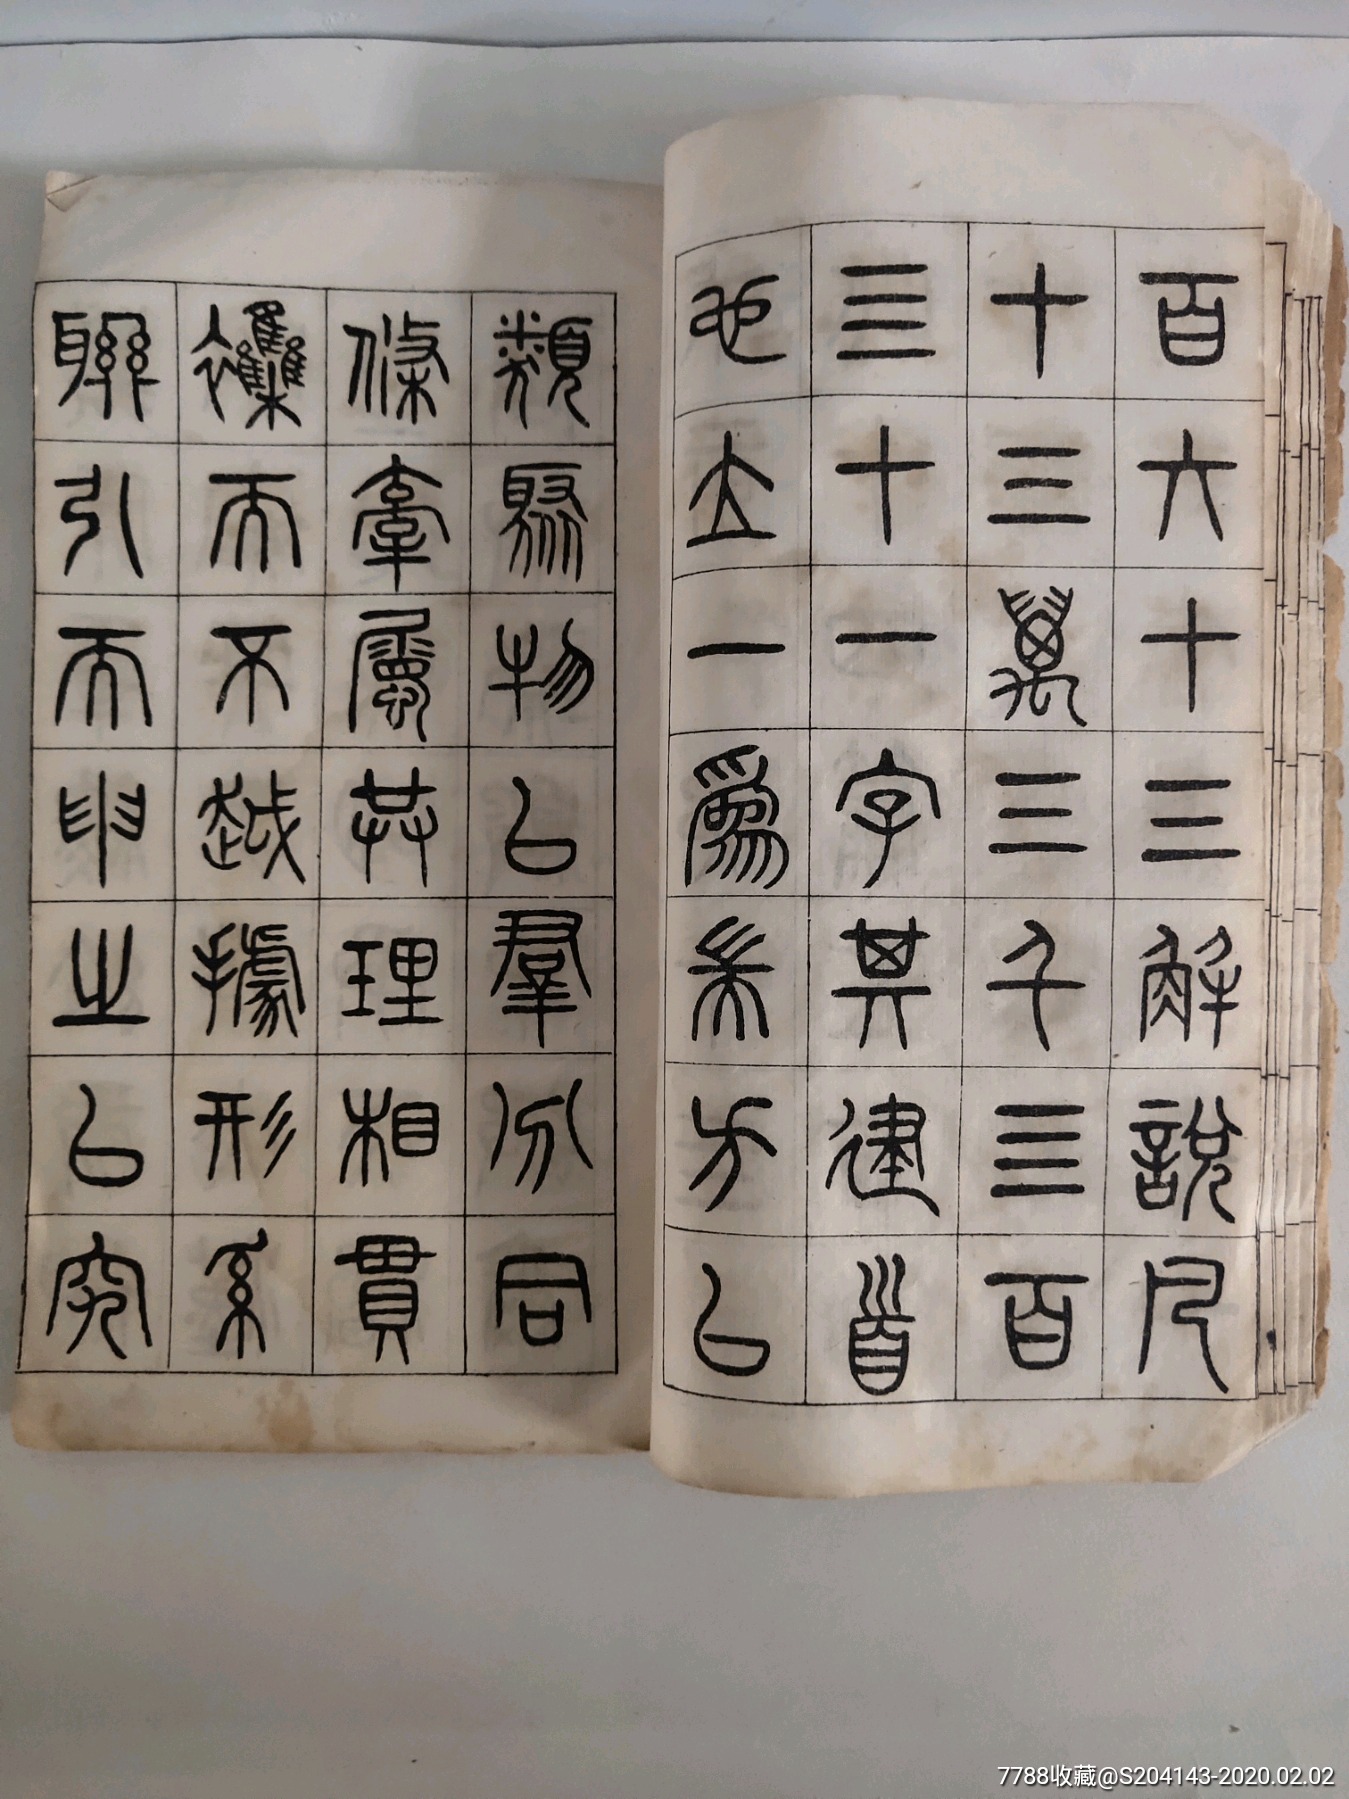 百六十三解說凡
十三萬三千亖百
亖十一字其建首
也立一爲耑方以
類聚物以羣分同
條牽屬共理相貫
雜而不越據形系
聯引而申之以究
7788收藏@S204143-2020.02.02